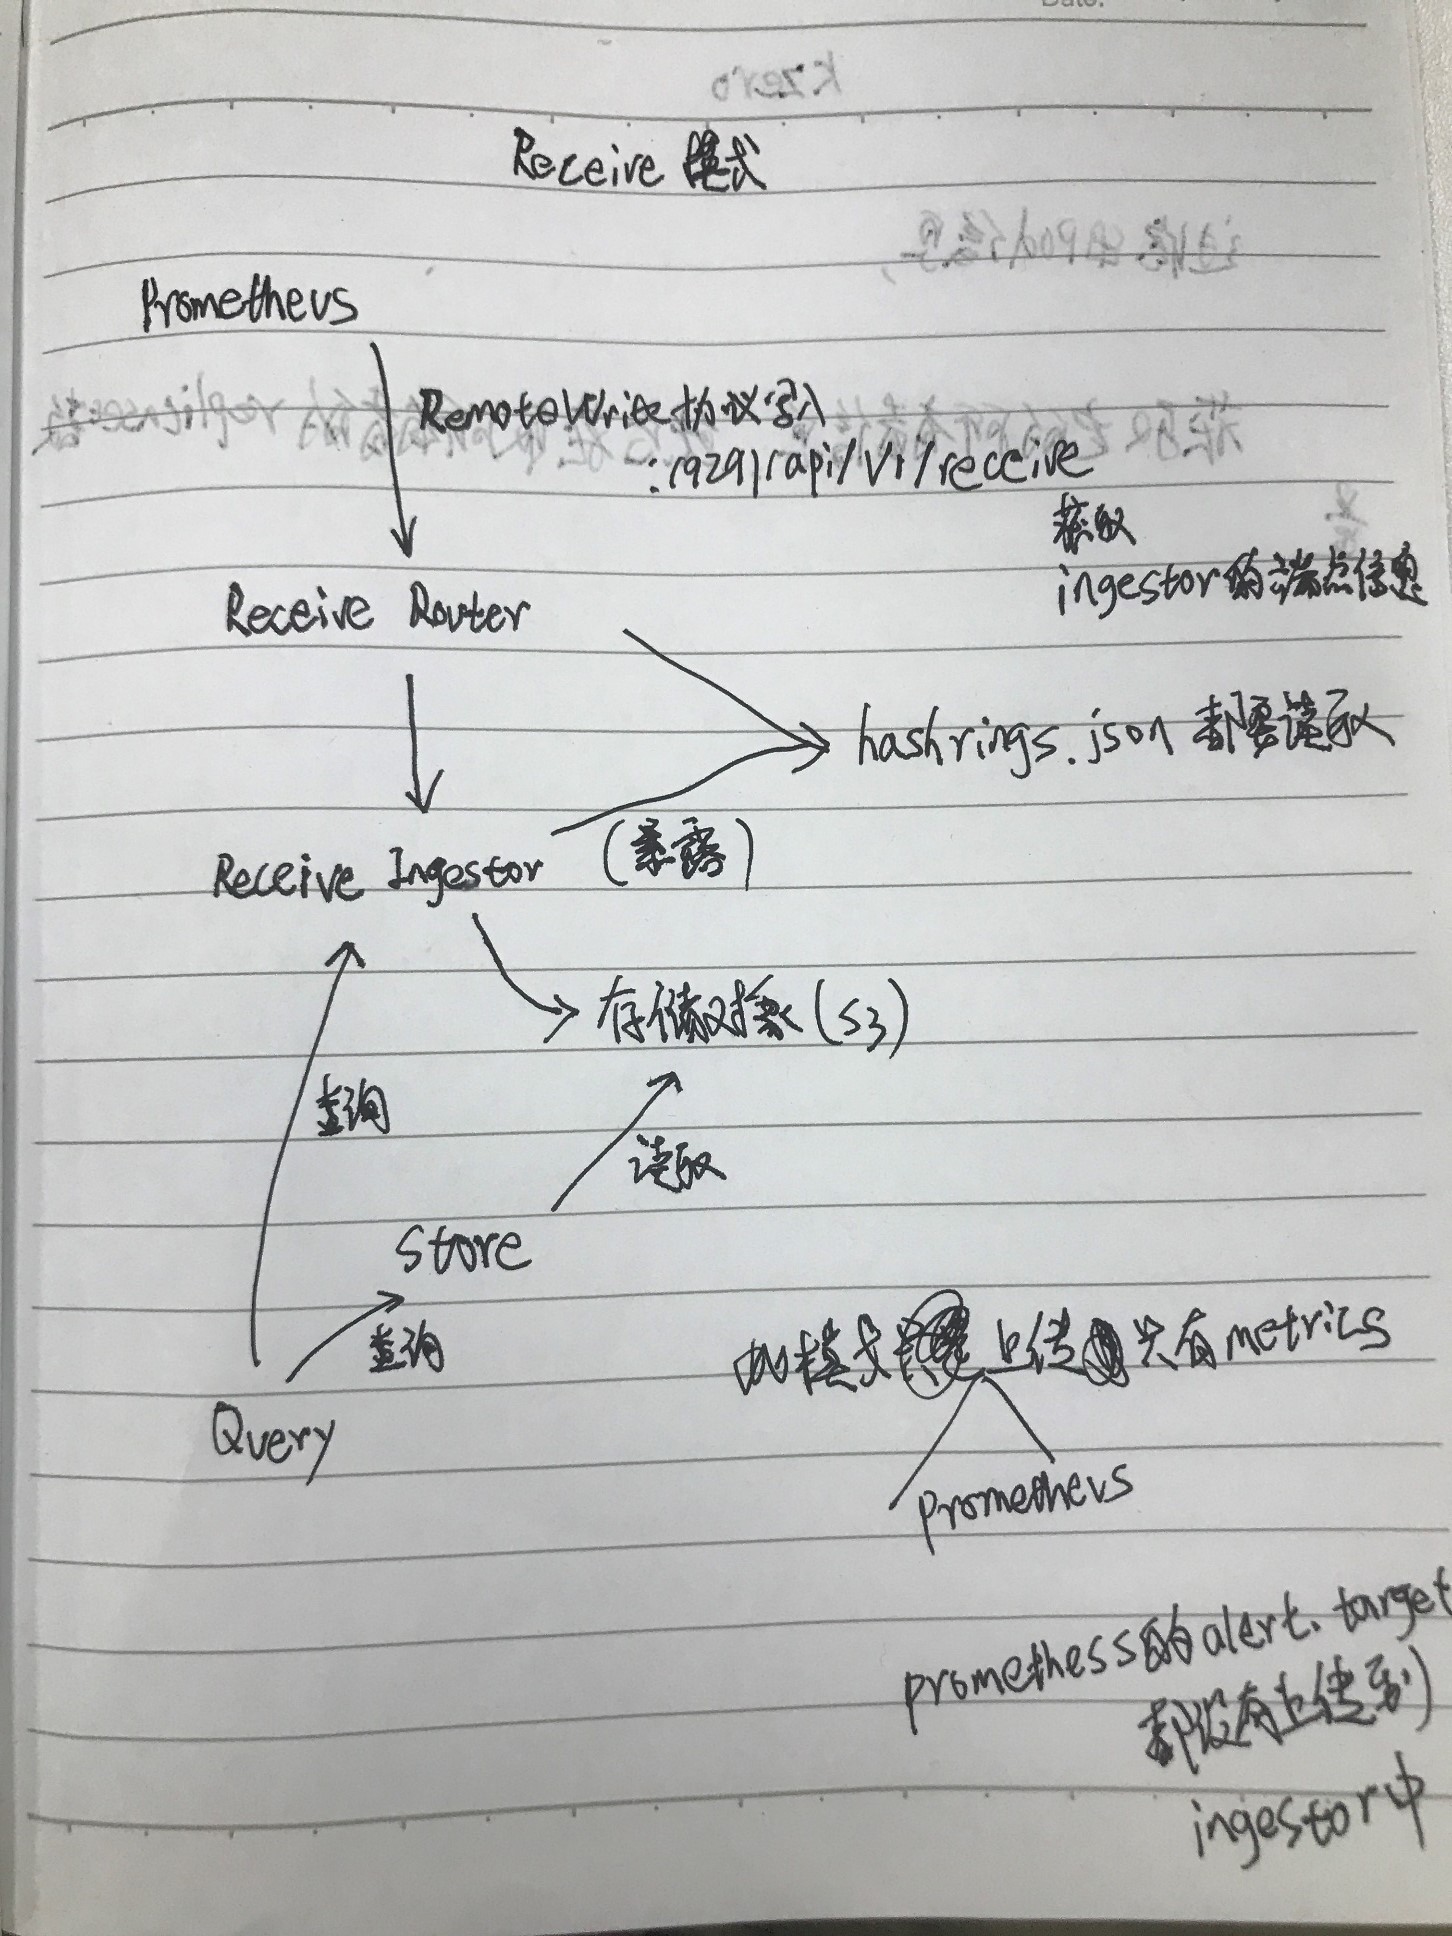 Date:
Receive 模式
Prometheus
RemoteWrite 协议写入
:19291/api/v1/receive
获取
ingestor的端点信息
Receive Router
hashrings.json 都要读取
Receive Ingestor (暴露)
存储对象(S3)
查询
读取
Store
查询
模式 上传 只有metrics
Query
prometheus
promethess的alert、target
都没有上传到
ingestor中